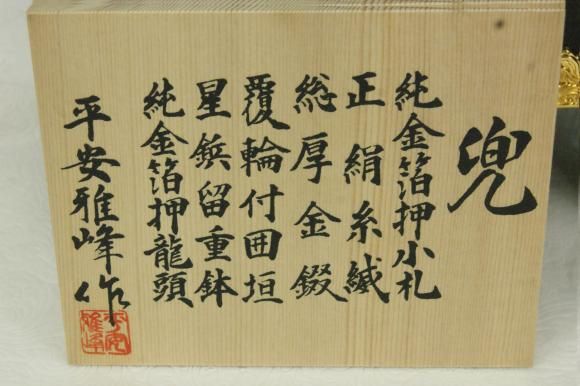 兜
純金箔押小札
正絹糸縅
総厚金綴
覆輪付囲垣
星鋲留重鉢
純金箔押龍頭
平安雅峰作
平安雅峰